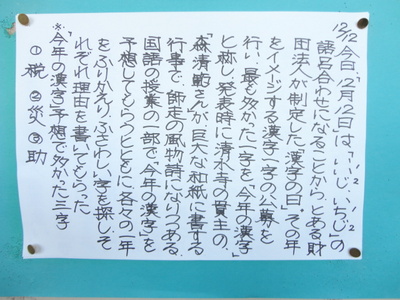 12/12 今日、12月12日は「いいじ、いちじ」の
語呂合わせになることから、とある財
団法人が制定した「漢字の日」。その年
をイメージする漢字一字の公募を
行い、最も多かった一字を「今年の漢字」
と称し、発表時に清水寺の貫主の、
「森清範さんが巨大な和紙に書する
行事で、師走の風物詩になりつつある。
国語の授業の一部で、「今年の漢字」を
予想してもらうとともに、各々の一年
をふりかえり、ふさわしい字を探しそ
れぞれ理由を書いてもらった
※「今年の漢字」予想で多かった三字
①税 ②災 ③助